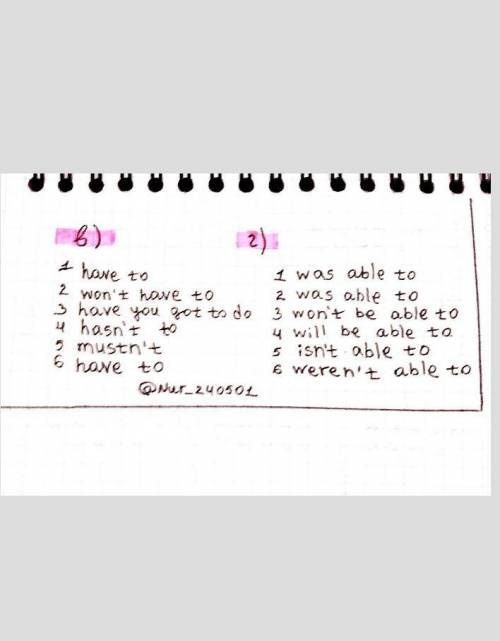 в)
1 have to
2 won't have to
3 have you got to do
4 hasn't to
5 mustn't
6 have to
г)
1 was able to
2 was able to
3 won't be able to
4 will be able to
5 isn't able to
6 weren't able to
@Nur_240501